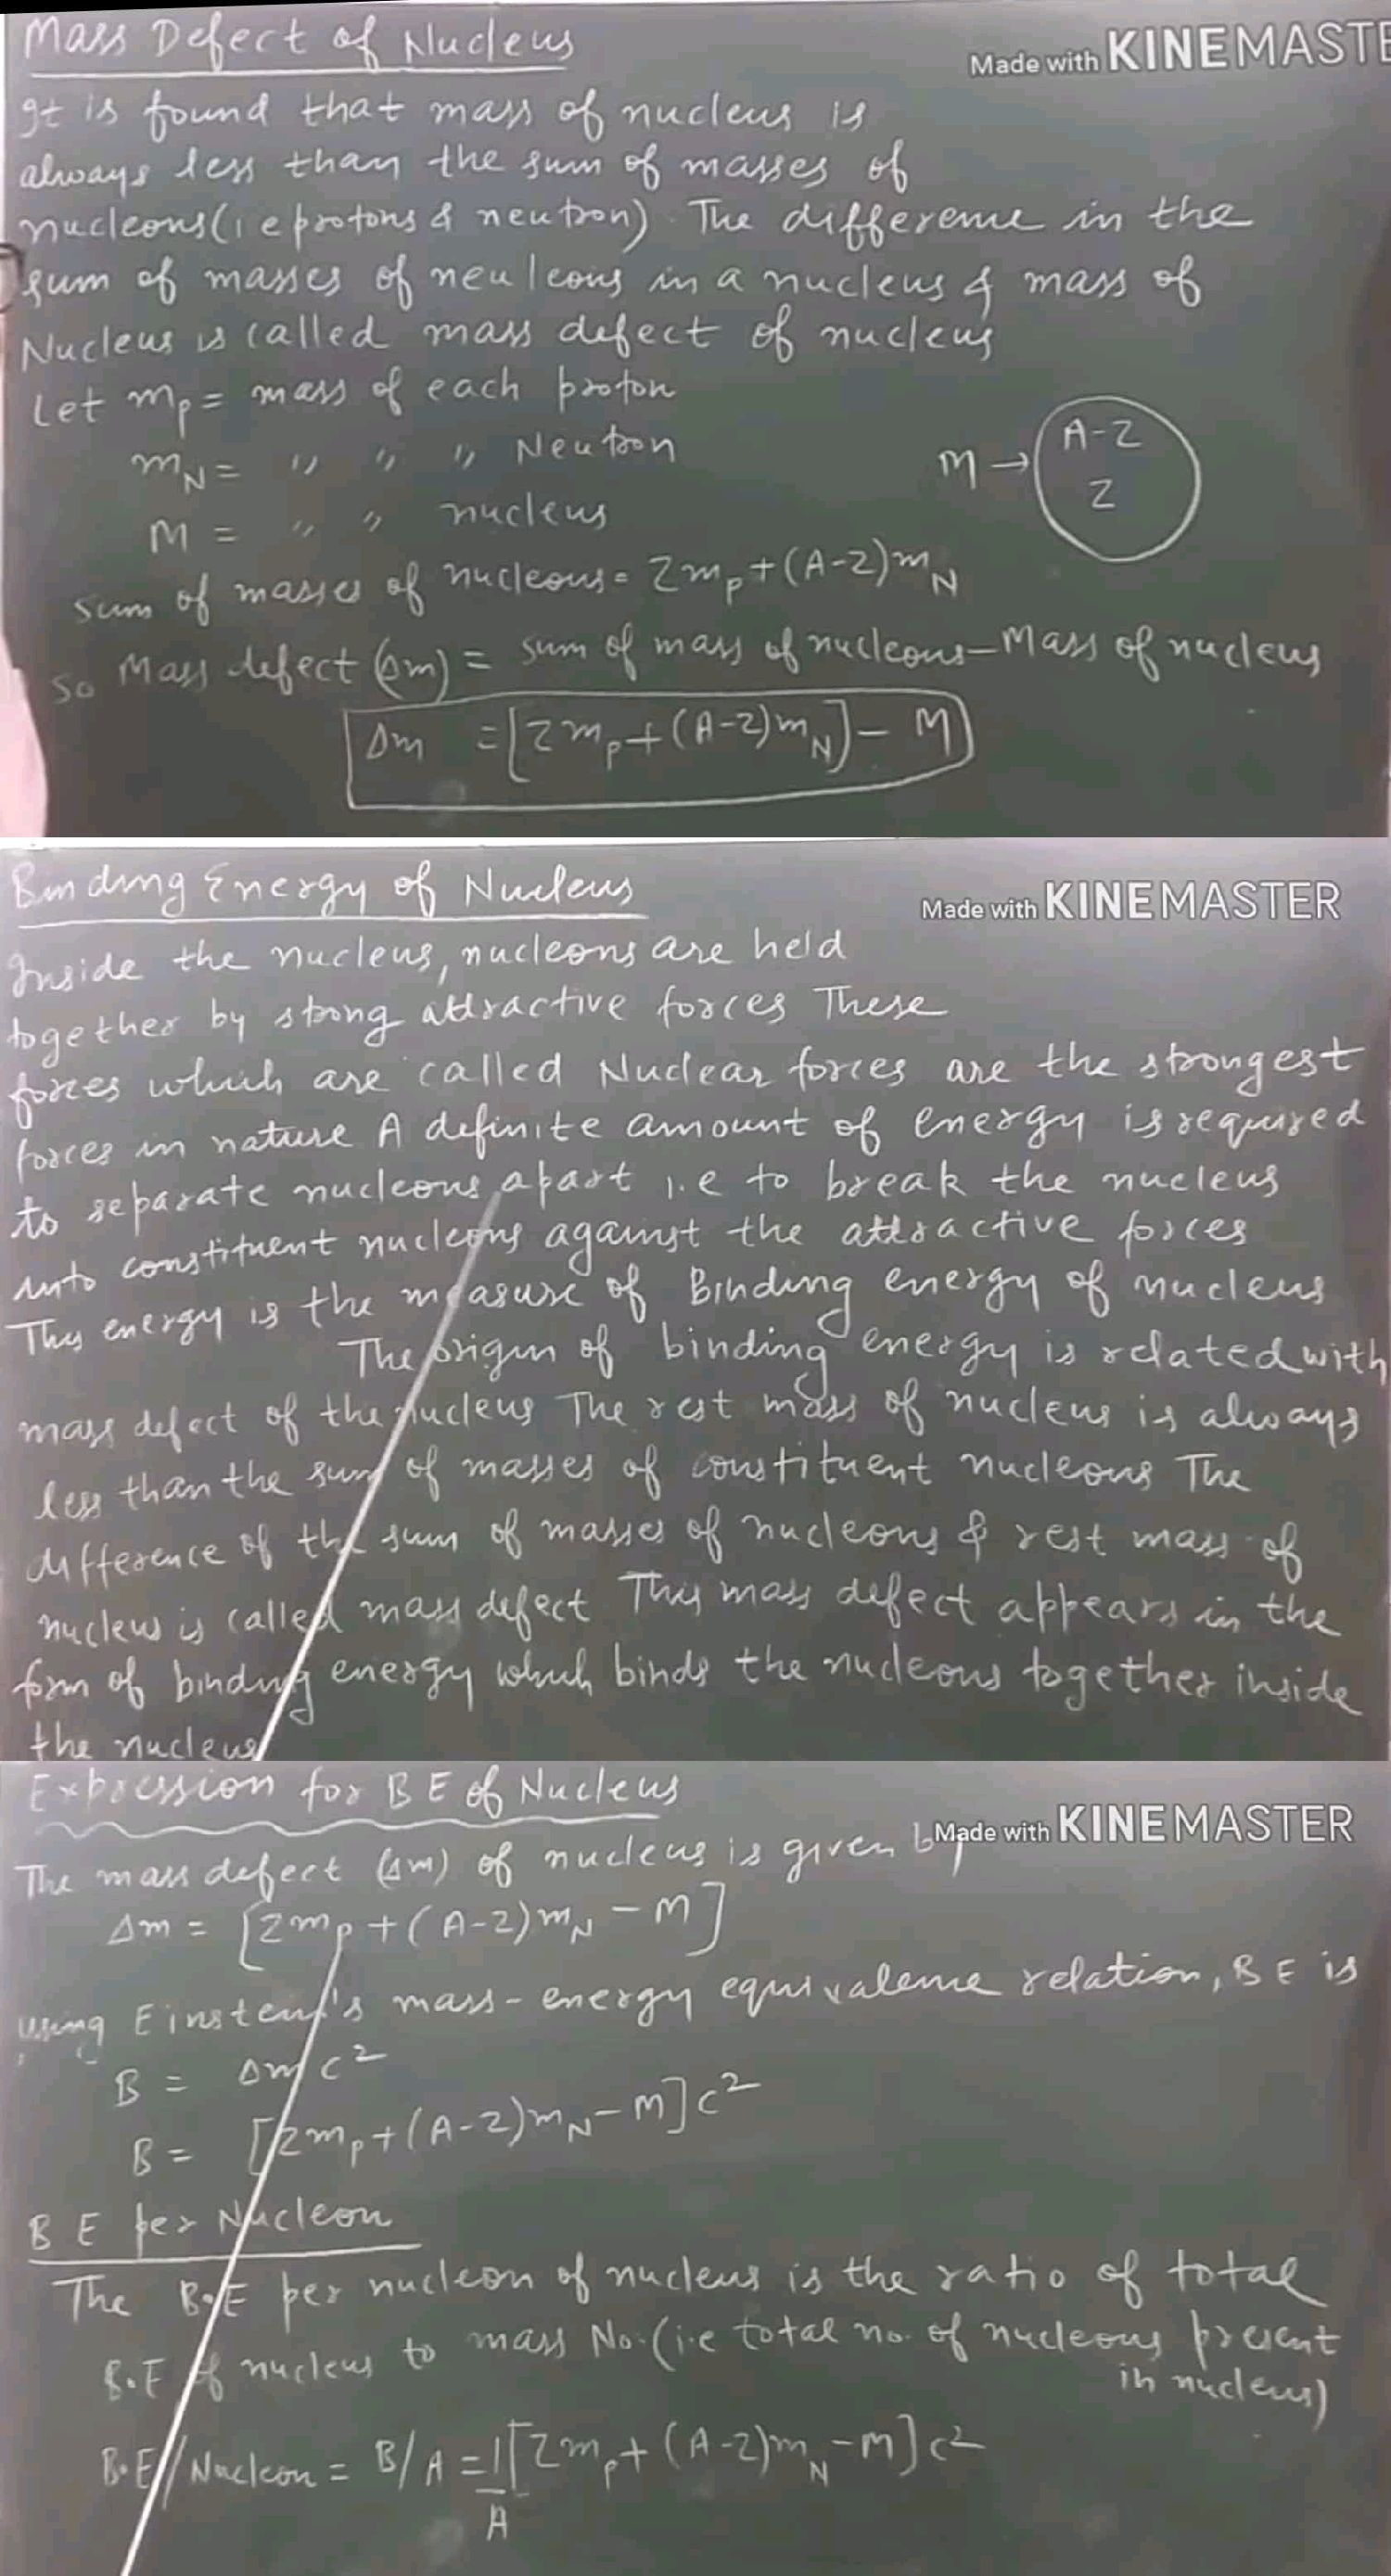 Mass Defect of Nucleus
Made with KINEMASTE
It is found that mass of nucleus is
always less than the sum of masses of
nucleons (i e protons & neutron). The difference in the
sum of masses of neuleons in a nucleus & mass of
Nucleus is called mass defect of nucleus
Let mp = mass of each proton
mN = " " " Neutron
M = " " nucleus
M → A-Z
Z
sum of masses of nucleons = Zmp + (A-Z)mN
So Mass defect (Δm) = sum of mass of nucleons - Mass of nucleus
Δm = [Zmp + (A-Z)mN] - M
Binding Energy of Nucleus
Made with KINEMASTER
Inside the nucleus, nucleons are held
together by strong attractive forces These
forces which are called Nuclear forces are the strongest
forces in nature A definite amount of energy is required
to separate nucleons apart i.e to break the nucleus
into constituent nucleons against the attractive forces
This energy is the measure of Binding energy of nucleus
The origin of binding energy is related with
mass defect of the nucleus The rest mass of nucleus is always
less than the sum of masses of constituent nucleons The
difference of the sum of masses of nucleons & rest mass of
nucleus is called mass defect This mass defect appears in the
form of binding energy which binds the nucleons together inside
the nucleus
Expression for B E of Nucleus
Made with KINEMASTER
The mass defect (Δm) of nucleus is given by
Δm = [Zmp + (A-Z)mN - M]
using Einstein's mass-energy equivalence relation, B E is
B = Δm c²
B = [Zmp + (A-Z)mN - M] c²
B E per Nucleon
The B.E per nucleon of nucleus is the ratio of total
B.E of nucleus to mass No. (i.e total no. of nucleons present
in nucleus)
B.E/Nucleon = B/A = 1/A [Zmp + (A-Z)mN - M] c²